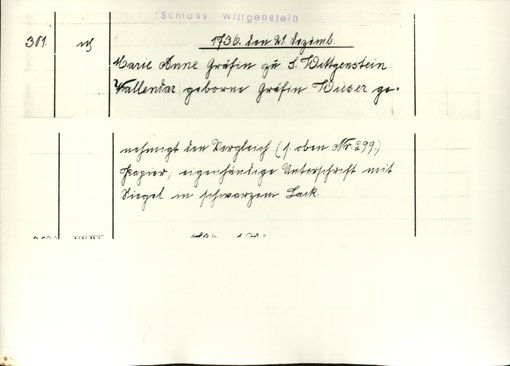 Schloss Wittgenstein
301. 1736. den 21 Dezemb.
Marie Anne Gräfin zu S. Wittgenstein
Vallendar geborne Gräfin Wieser ge-
nehmigt den Vergleich (s. oben Nr. 299.)
Papier, eigenhändige Unterschrift mit
Siegel in schwarzem Lack.